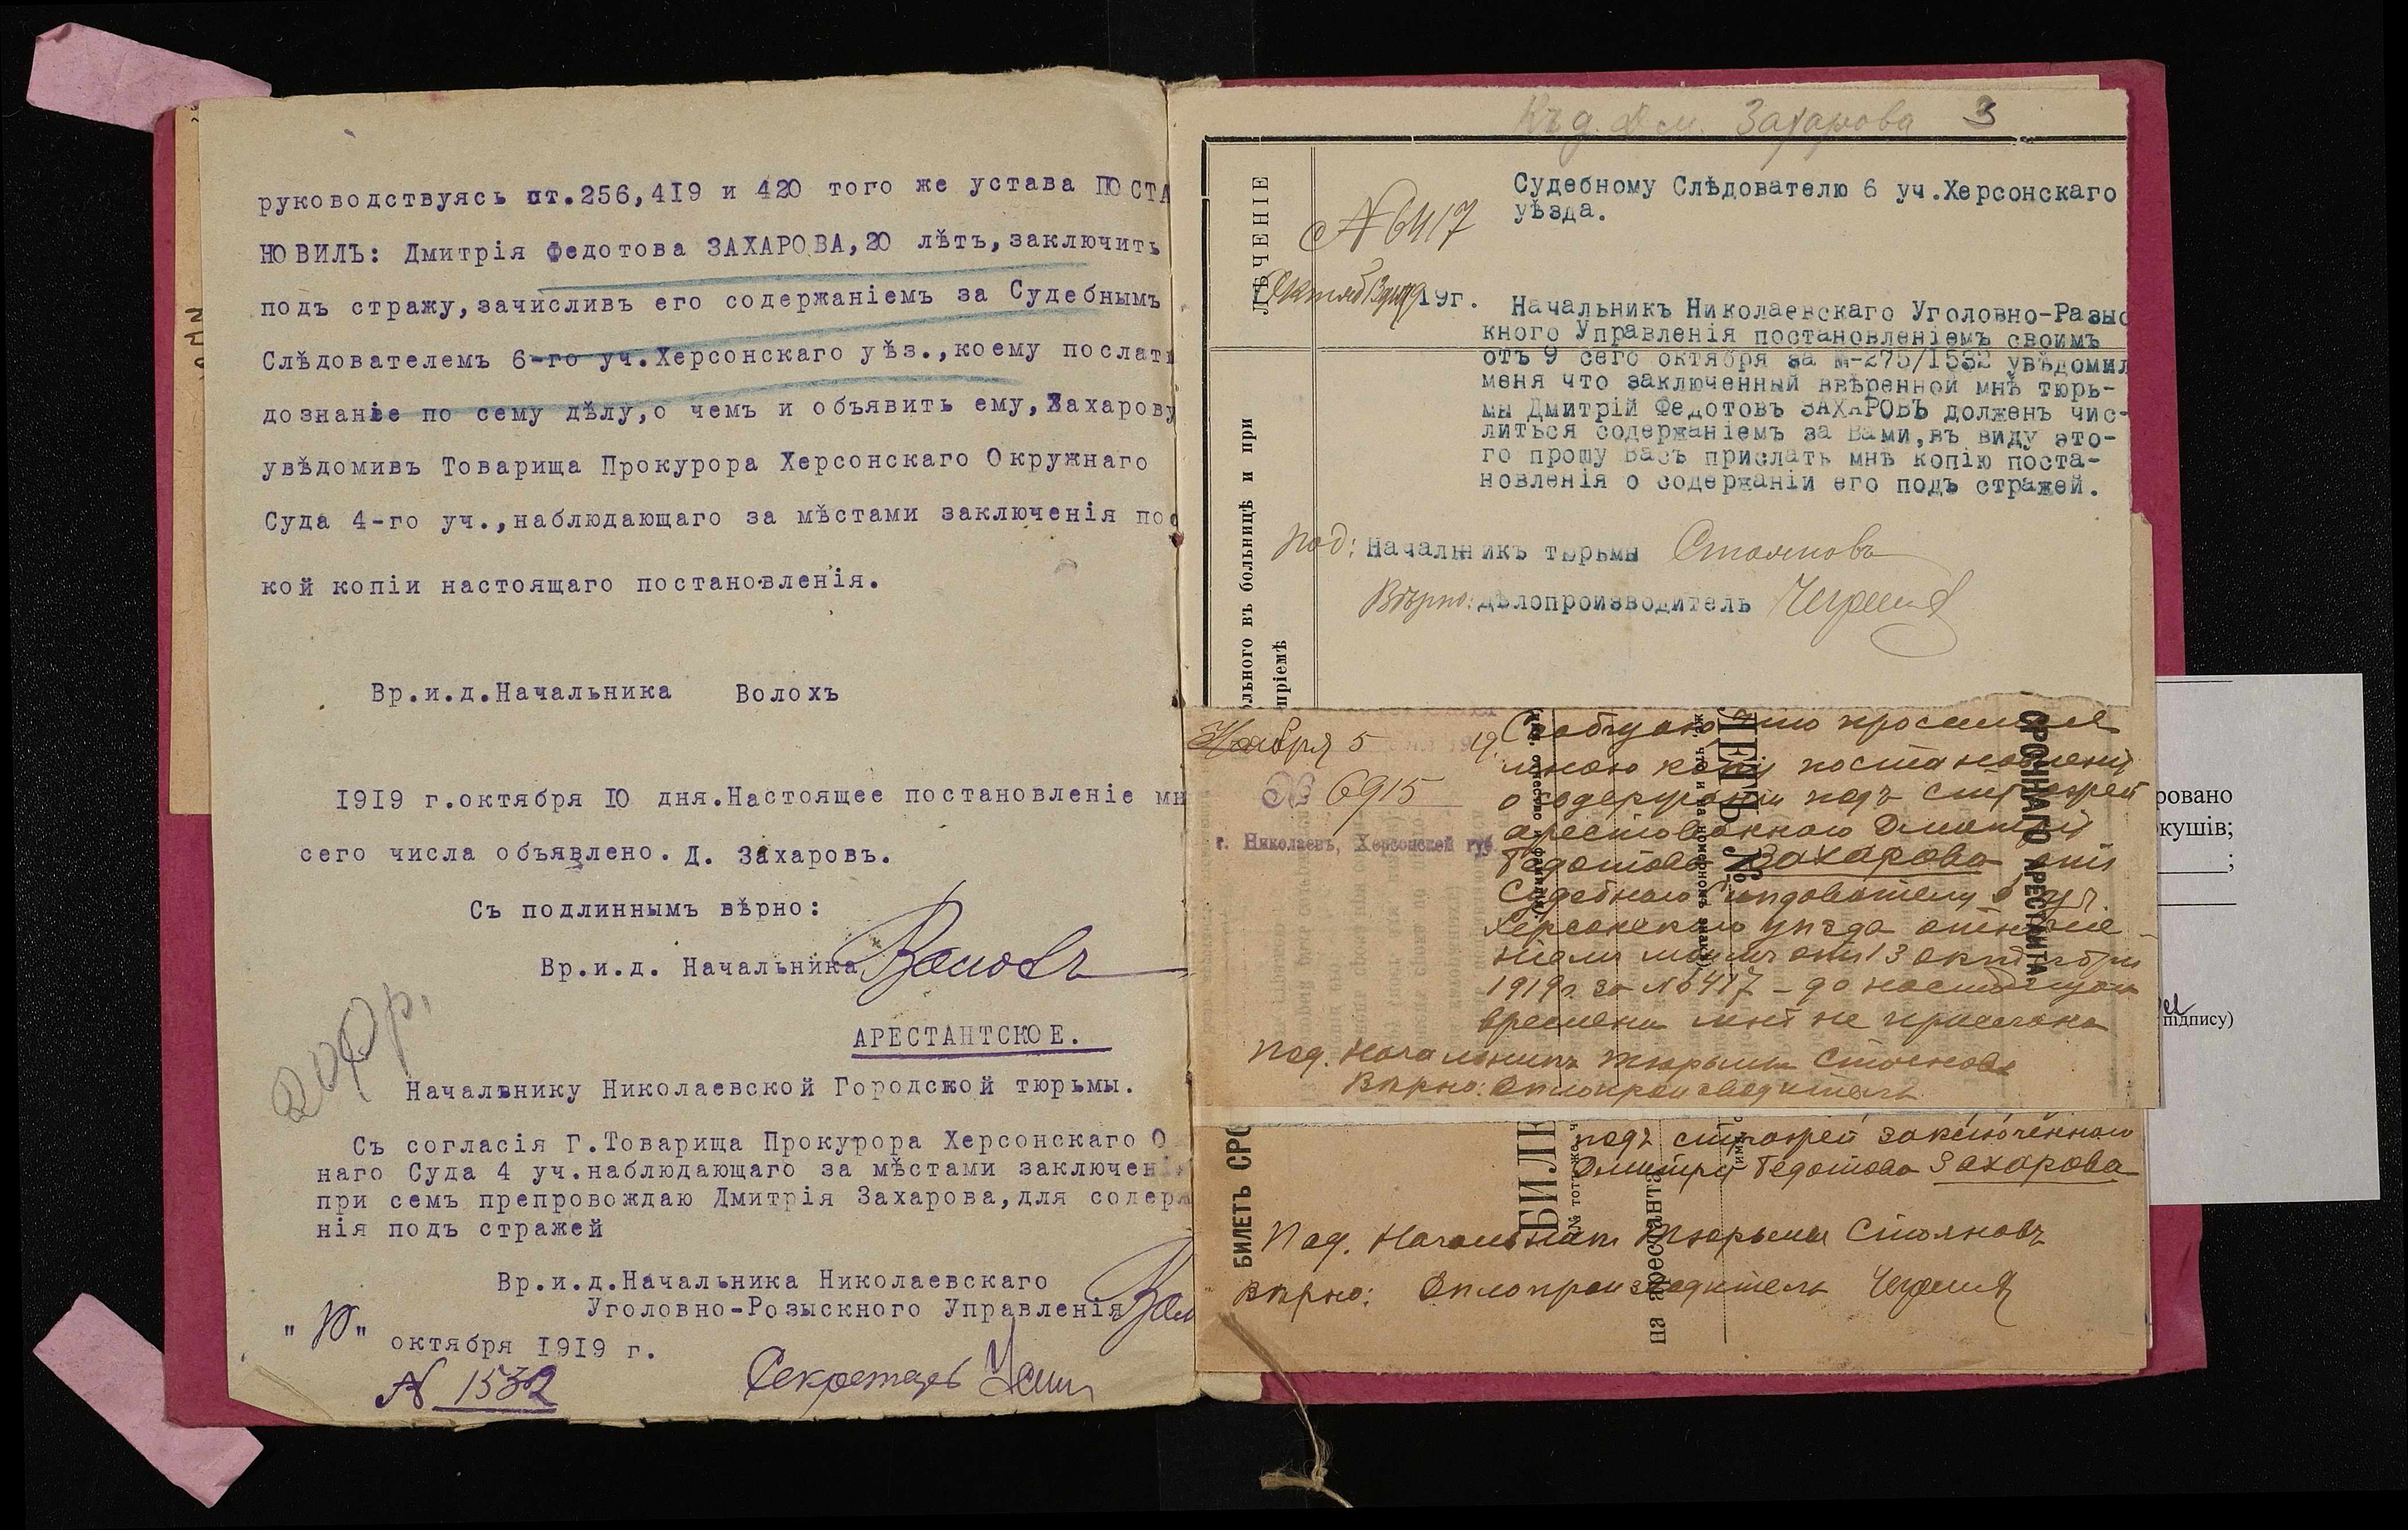 руководствуясь ст.256,419 и 420 того же устава ПОСТА
НОВИЛЪ: Дмитрія Федотова ЗАХАРОВА,20 лѣтъ,заключить
подъ стражу,зачисливъ его содержаніемъ за Судебнымъ
Слѣдователемъ 6-го уч.Херсонскаго уѣз.,коему послать
дознаніе по сему дѣлу,о чемъ и объявить ему,Захарову
увѣдомивъ Товарища Прокурора Херсонскаго Окружнаго
Суда 4-го уч.,наблюдающаго за мѣстами заключенія пос
кой копіи настоящаго постановленія.
Вр.и.д.Начальника Волохъ
1919 г.октября 10 дня.Настоящее постановленіе мн
сего числа объявлено. Д. Захаровъ.
Съ подлиннымъ вѣрно:
Вр.и.д. Начальника
АРЕСТАНТСКОЕ.
Начальнику Николаевской Городской тюрьмы.
Съ согласія Г.Товарища Прокурора Херсонскаго О
наго Суда 4 уч.наблюдающаго за мѣстами заключені
при семъ препровождаю Дмитрія Захарова,для содерж
нія подъ стражей
Вр.и.д.Начальника Николаевскаго
Уголовно-Розыскного Управленія
"10" октября 1919 г.
№ 1532
Секретарь
Къ д. Дм. Захарова 3
ЛѢЧЕНІЕ
льного въ больницѣ и при
пріемѣ
№ 6417
Октяб 13 дня 19г.
Судебному Слѣдователю 6 уч.Херсонскаго
уѣзда.
Начальникъ Николаевскаго Уголовно-Разыс
кного Управленія постановленіемъ своимъ
отъ 9 сего октября за №-275/1532 увѣдомил
меня что заключенный ввѣренной мнѣ тюрь-
мы Дмитрій Федотовъ ЗАХАРОВЪ долженъ чис-
литься содержаніемъ за Вами,въ виду это-
го прошу Васъ прислать мнѣ копію поста-
новленія о содержаніи его подъ стражей.
под: Начальникъ тюрьмы Стояновъ
Вѣрно: Дѣлопроизводитель
Ноября 5 19.
№ 6915
г. Николаевъ, Херсонской губ.
Сообщаю что просимая
мною копія постановленія
о содержаніи подъ стражей
арестованнаго Дмитрія
Федотова Захарова отъ
Судебнаго Слѣдователя 6 уч.
Херсонскаго уѣзда отноше-
ніемъ моимъ отъ 13 октября
1919г. за №6417 - до настоящаго
времени мнѣ не прислана
Под. Начальникъ тюрьмы Стояновъ
Вѣрно: Дѣлопроизводитель
СРОЧНАГО АРЕСТАНТА
БИЛЕТЪ СРО
БИЛЕ
на арестанта
подъ стражей заключеннаго
Дмитрія Федотова Захарова
Под. Начальникъ Тюрьмы Стояновъ
Вѣрно: Дѣлопроизводитель
ровано
кушів;
;
підпису)